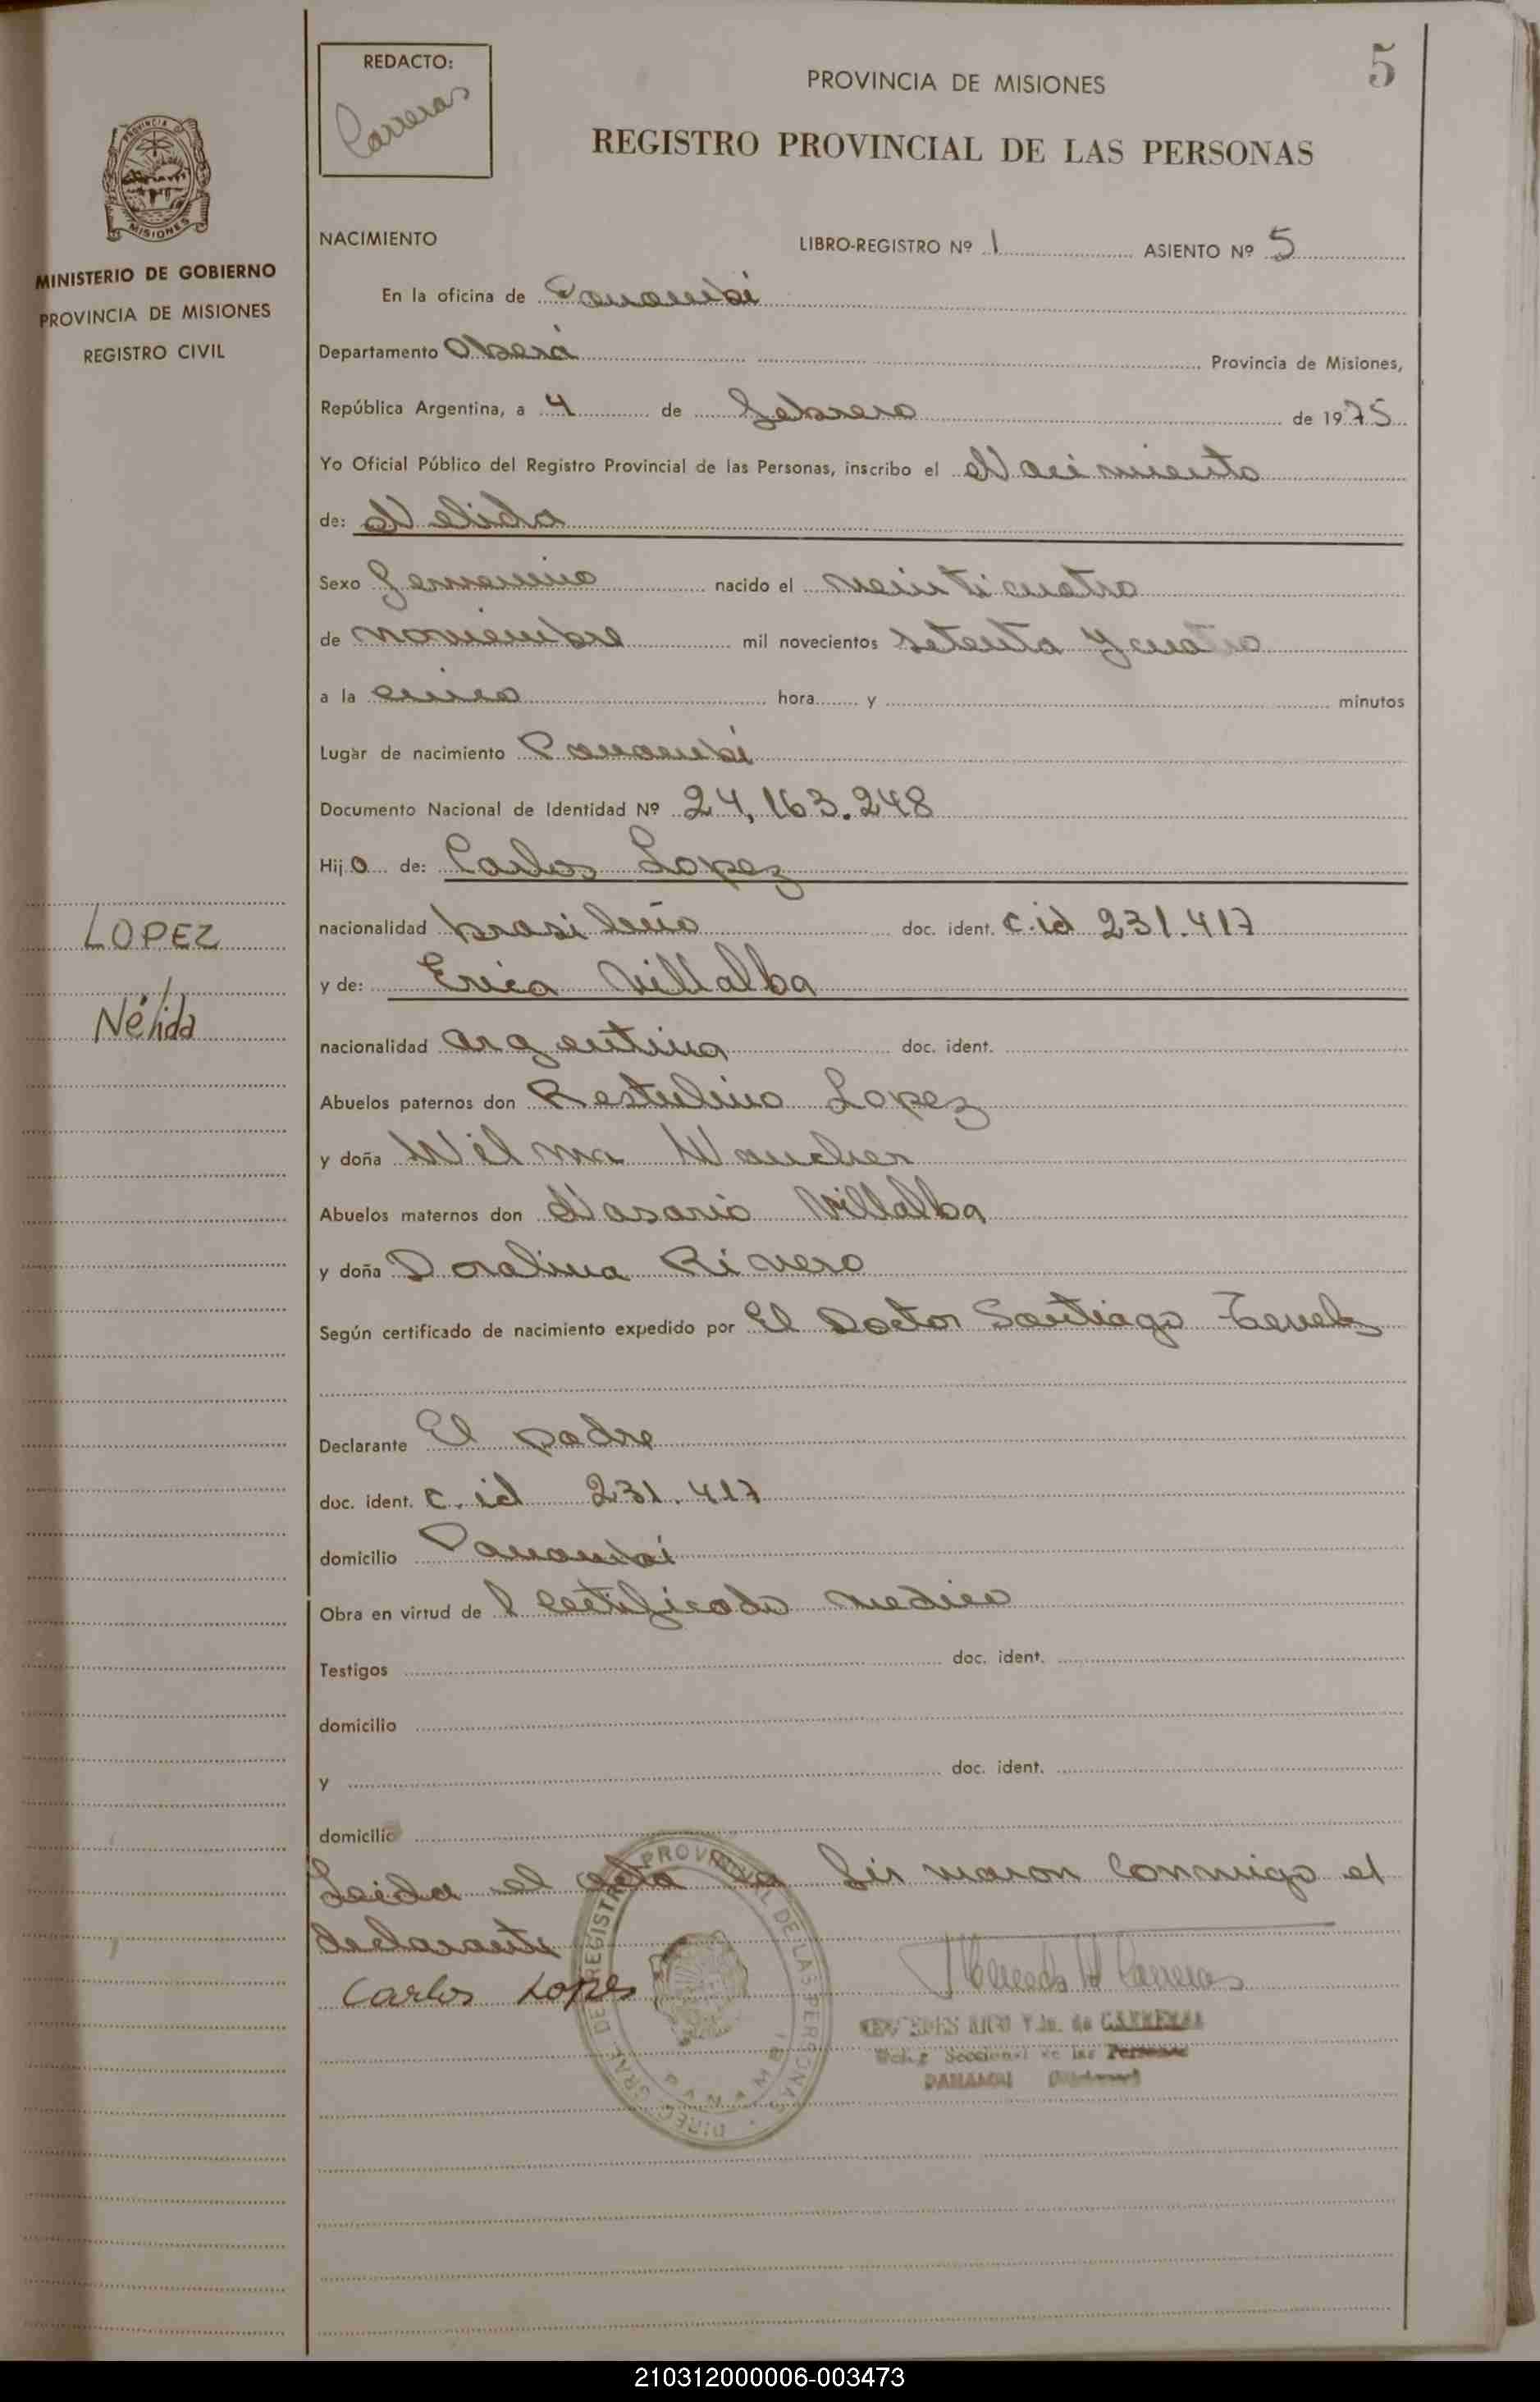 REDACTO:
Carreras
5
PROVINCIA DE MISIONES
REGISTRO PROVINCIAL DE LAS PERSONAS
PROVINCIA DE
MISIONES
MINISTERIO DE GOBIERNO
PROVINCIA DE MISIONES
REGISTRO CIVIL
NACIMIENTO LIBRO-REGISTRO Nº 1 ASIENTO Nº 5
En la oficina de Panambí
Departamento Oberá Provincia de Misiones,
República Argentina, a 4 de febrero de 1975
Yo Oficial Público del Registro Provincial de las Personas, inscribo el Nacimiento
de: Nelida
Sexo femenino nacido el veinticuatro
de noviembre mil novecientos setenta y cuatro
a la cinco hora y minutos
Lugar de nacimiento Panambí
Documento Nacional de Identidad Nº 24,163.248
Hij o de: Carlos Lopez
nacionalidad brasileño doc. ident. c.id 231.417
LOPEZ
y de: Erica Villalba
Nélida
nacionalidad argentina doc. ident.
Abuelos paternos don Restulino Lopez
y doña Wilma
Abuelos maternos don Nasario Villalba
y doña Doralina Rivero
Según certificado de nacimiento expedido por El Doctor Santiago
Declarante El padre
doc. ident. c. id 231.417
domicilio Panambí
Obra en virtud de l certificado medico
Testigos doc. ident.
domicilio
y doc. ident.
domicilio
Leida el acta la firmaron conmigo el
declarante
Carlos Lopes
DIREC. GRAL. DE REGISTRO PROVINCIAL DE LAS PERSONAS
Carreras
de CARRERAS
Seccional de las Personas
PANAMBI (Misiones)
210312000006-003473